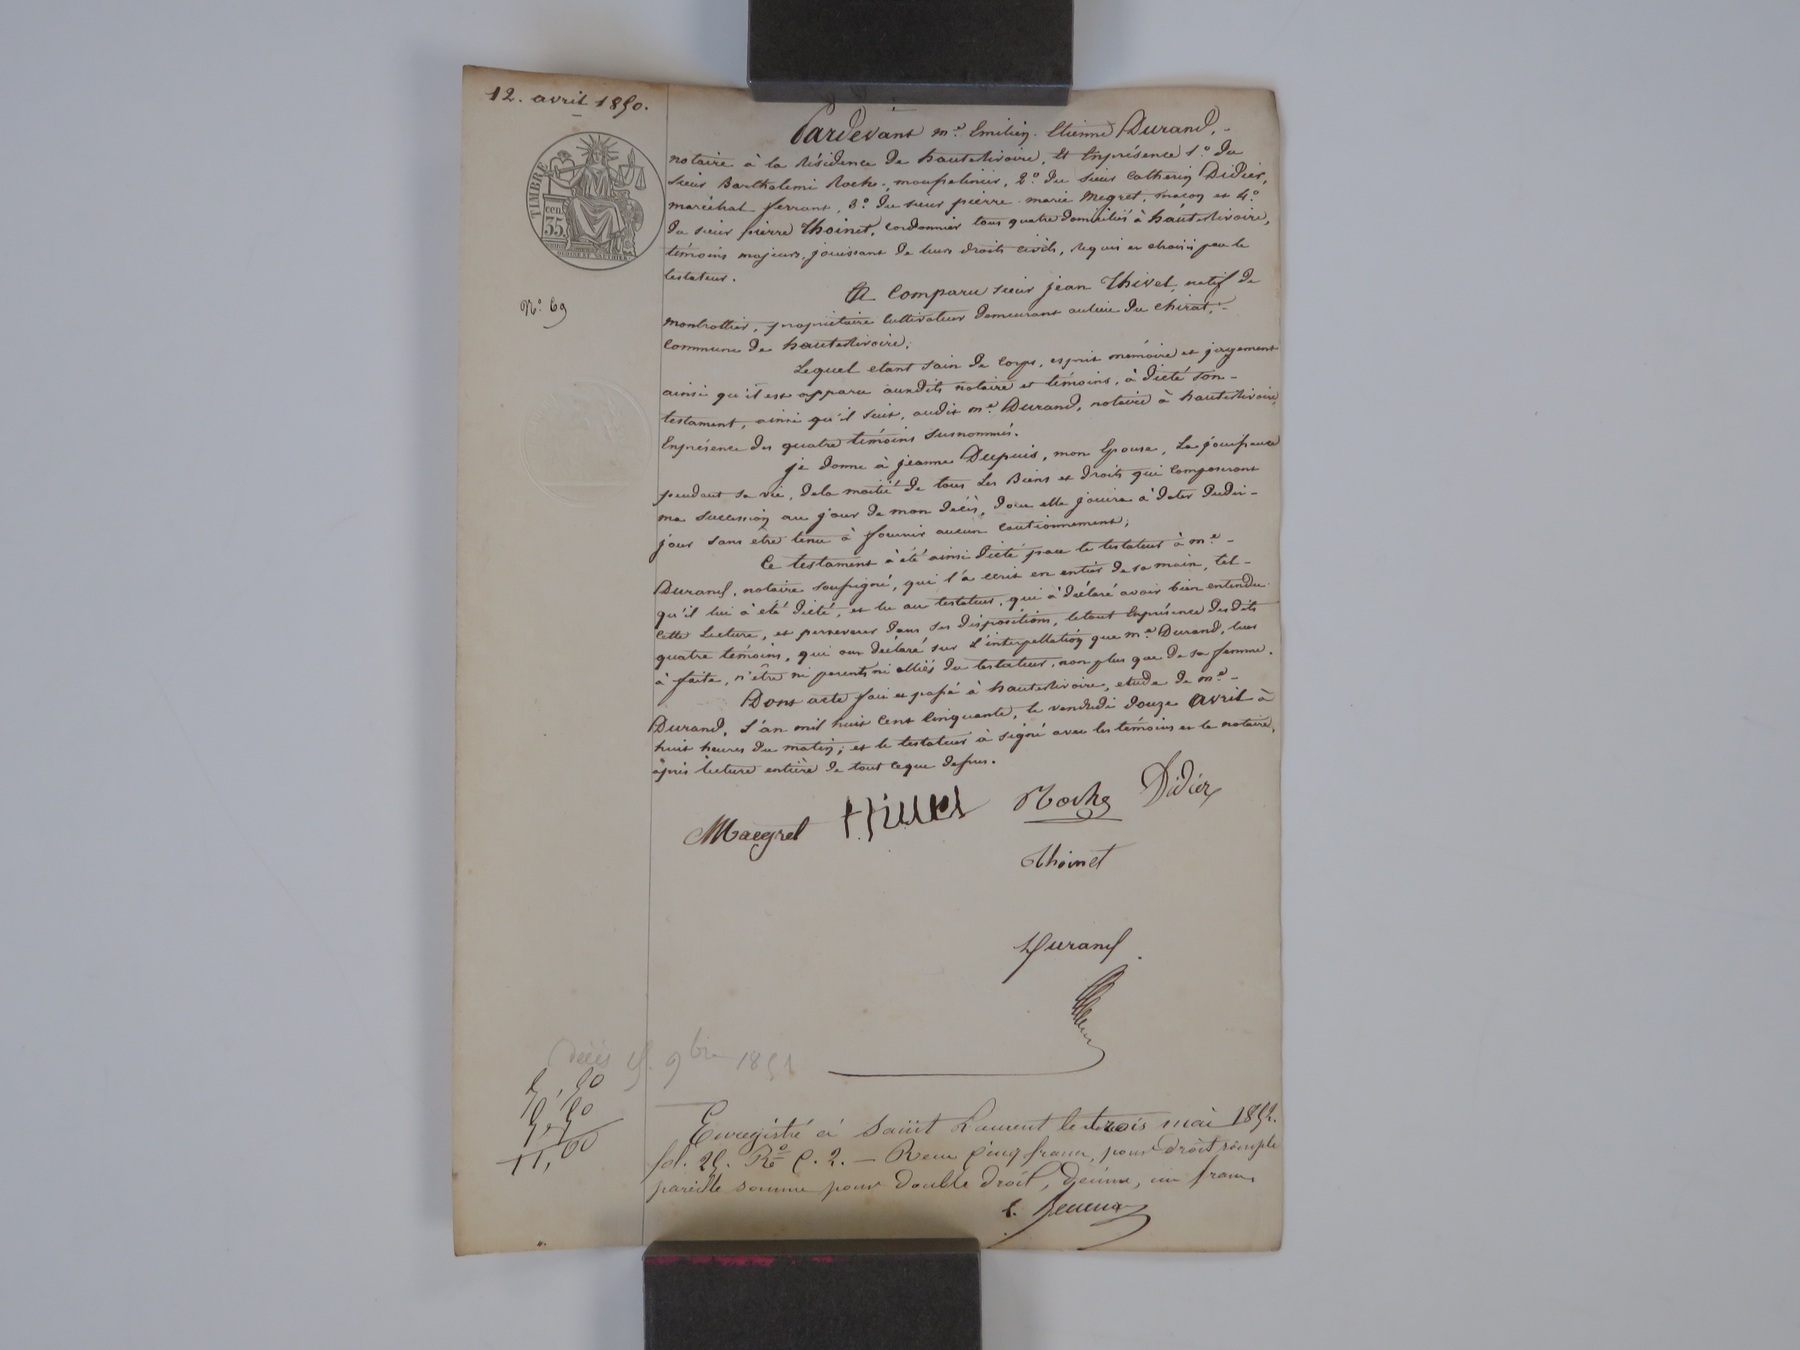 12. avril 1850.
TIMBRE
cen.
35.
N.o 69
Pardevant m.e Emilien Etienne Durand,
notaire à la résidence de hauterivoire, Et Enprésence 1.o du
sieur Barthelemi Roche, 2.o du sieur Catherin Didier,
maréchal ferrant, 3.o du sieur pierre marie Megret, maçon et 4.o
du sieur pierre Thoinet, cordonnier tous quatre domiciliés à hauterivoire,
témoins majeurs, jouissant de leurs droits civils, requis et choisis par le
testateur.
A Comparu sieur jean Thivel, natif de
montrottier, propriétaire cultivateur demeurant aulieu du chirat,
Commune de hauterivoire;
Lequel etant sain de corps, esprit mémoire et jugement
ainsi qu'il est apparu auxdits notaire et témoins, à dicté son
testament, ainsi qu'il suit, audit m.e Durand, notaire à hauterivoire,
Enprésence des quatre témoins susnommés.
je donne à jeanne Dupuis, mon Epouse, La jouissance
pendant sa vie, dela moitié de tous Les Biens et droits qui composeront
ma succession au jour de mon décès, dont elle jouira à dater dudit
jour sans etre tenue à fournir aucun cautionnement;
Ce testament à été ainsi dicté par le testateur à m.e
Durand, notaire soussigné, qui l'a ecrit en entier de sa main, tel
qu'il lui à été dicté, et lu au testateur, qui à déclaré avoir bien entendu
cette Lecture, et perseverer dans ses dispositions, letout Enprésence desdits
quatre témoins, qui ont déclaré sur L'interpellation que m.e Durand, leur
à faite, n'être ni parents ni alliés du testateur, non plus que de sa femme.
Dont acte fait et passé à hauterivoire, etude de m.e
Durand, L'an mil huit cent cinquante, le vendredi douze avril à
huit heures du matin; et le testateur à signé avec les témoins et le notaire,
après lecture entière de tout ceque dessus.
Maegret Thivel Roche Didier
Thoinet
Durand
décès 9bre 1851
5,50
5,50
11,00
Enregistré à Saint Laurent le trois mai 1852.
fol. 25. Ro C. 2. — Reçu Cinq francs, pour droit simple
pareille somme pour double droit, décime, un franc